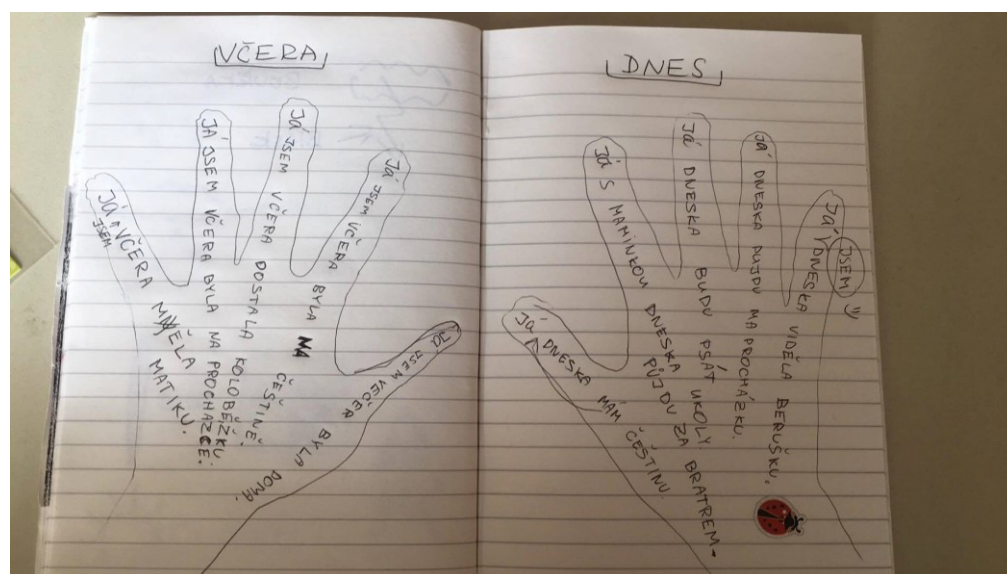 VČERA
JÁ JSEM VČERA MĚLA
MATIKU.
JÁ JSEM VČERA BYLA NA PROCHAZCE.
JÁ JSEM VČERA DOSTALA KOLOBĚŽKU.
JÁ JSEM VČERA BYLA NA ČEŠTINĚ.
JÁ JSEM VEČER BYLA DOMA.
DNES
JÁ DNESKA MÁM ČEŠTINU.
JÁ S MAMINKOU DNESKA
PŮJDU ZA BRATREM.
JÁ DNESKA BUDU PSÁT UKOLY.
JÁ DNESKA PUJDU MA PROCHÁZKU.
JÁ JSEM DNESKA VIDĚLA BERUŠKU.